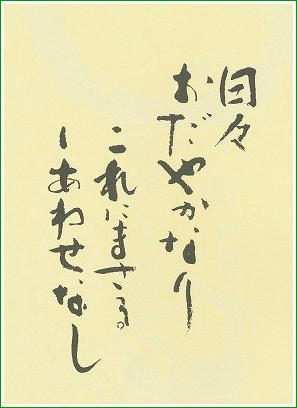 日々
おだやかなり
これにまさる。
しあわせ、なし